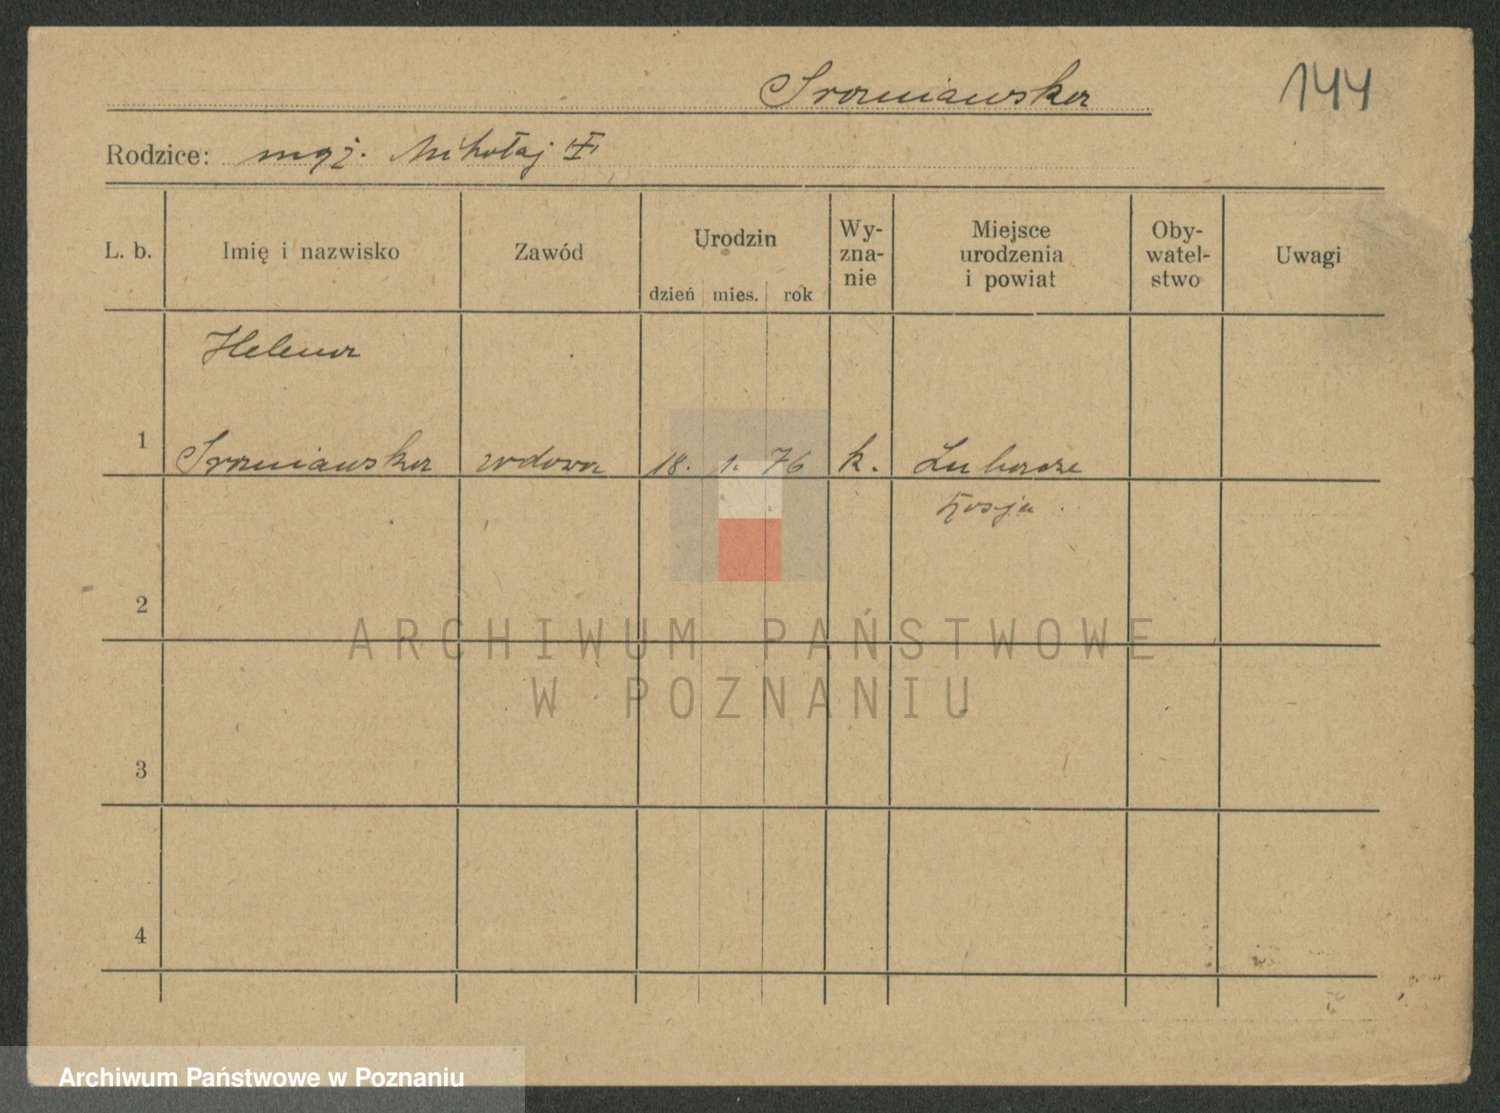 Sromiawska
144
Rodzice: mąż. Mikołaj
L. b.
Imię i nazwisko
Zawód
Urodzin
dzień mies. rok
Wy-
zna-
nie
Miejsce
urodzenia
i powiat
Oby-
watel-
stwo
Uwagi
Helena
1 Sromiawska wdowa 18. 1. 76 k.
Rosja
2
3
4
ARCHIWUM PAŃSTWOWE
W POZNANIU
Archiwum Państwowe w Poznaniu